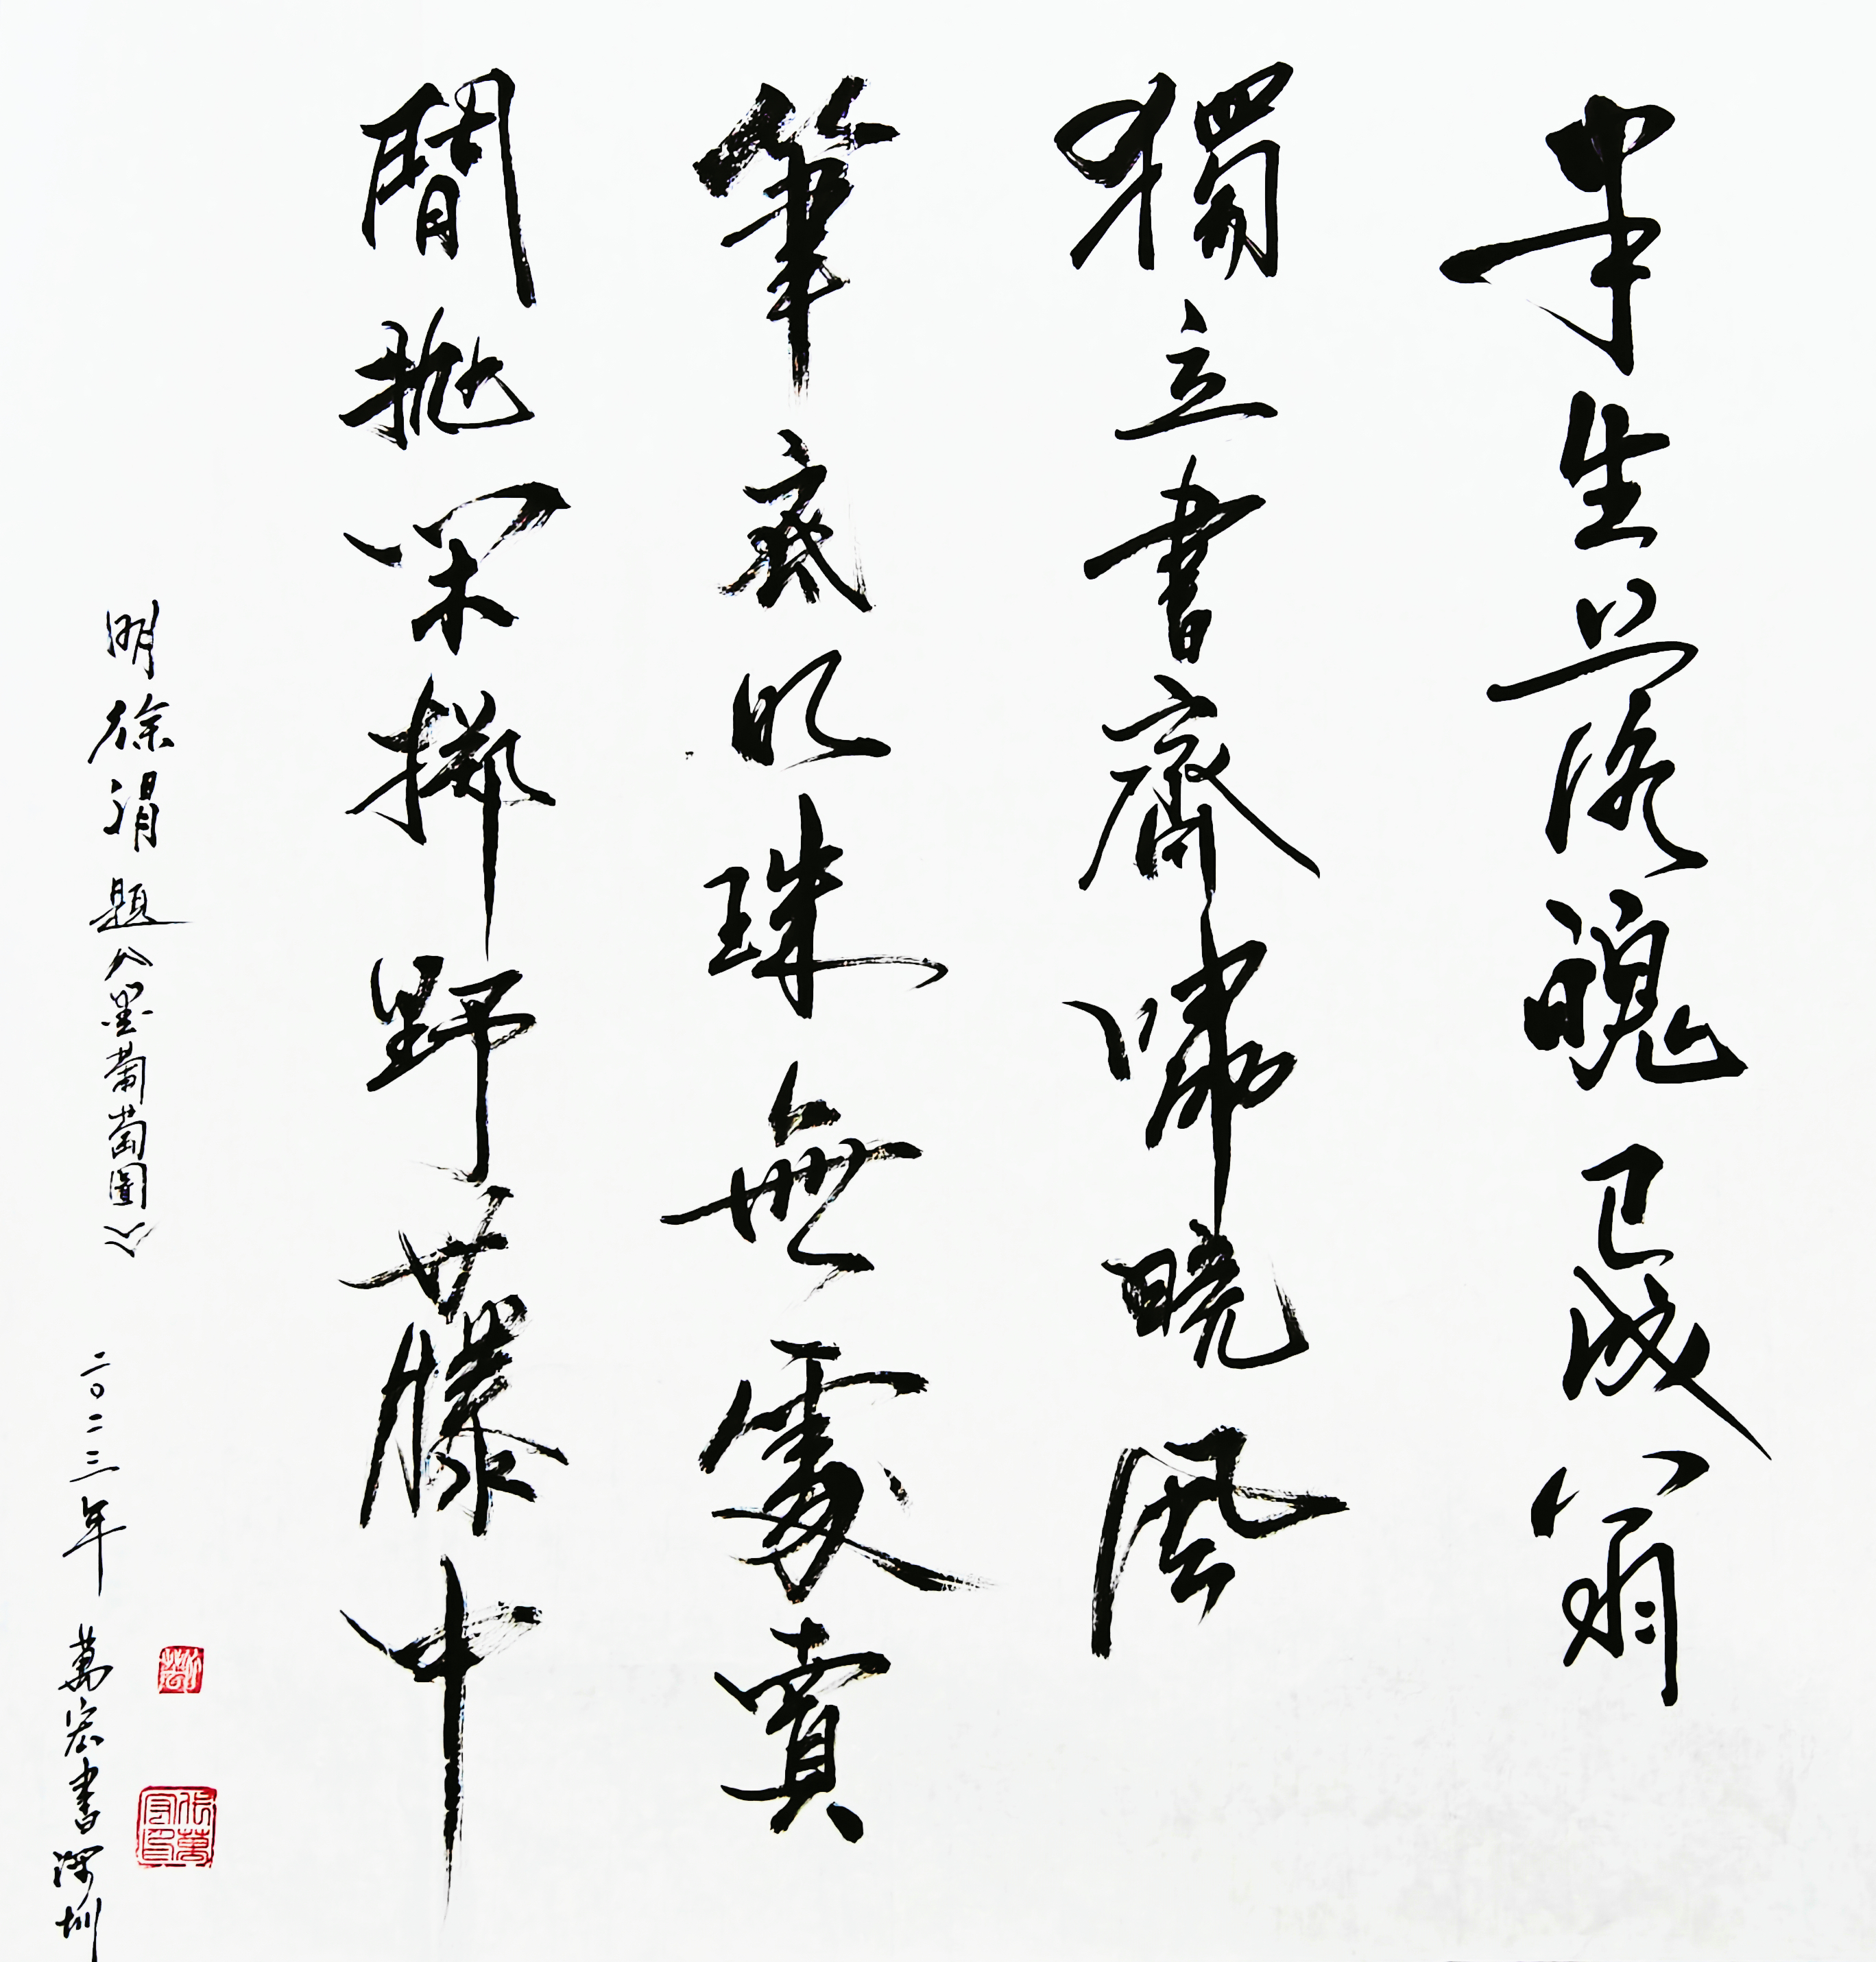 半生落魄已成翁
獨立書齋嘯晚風
筆底明珠無處賣
閒抛閑擲野藤中
明徐渭題《墨葡萄圖》
二〇二三年 萬宏書深圳